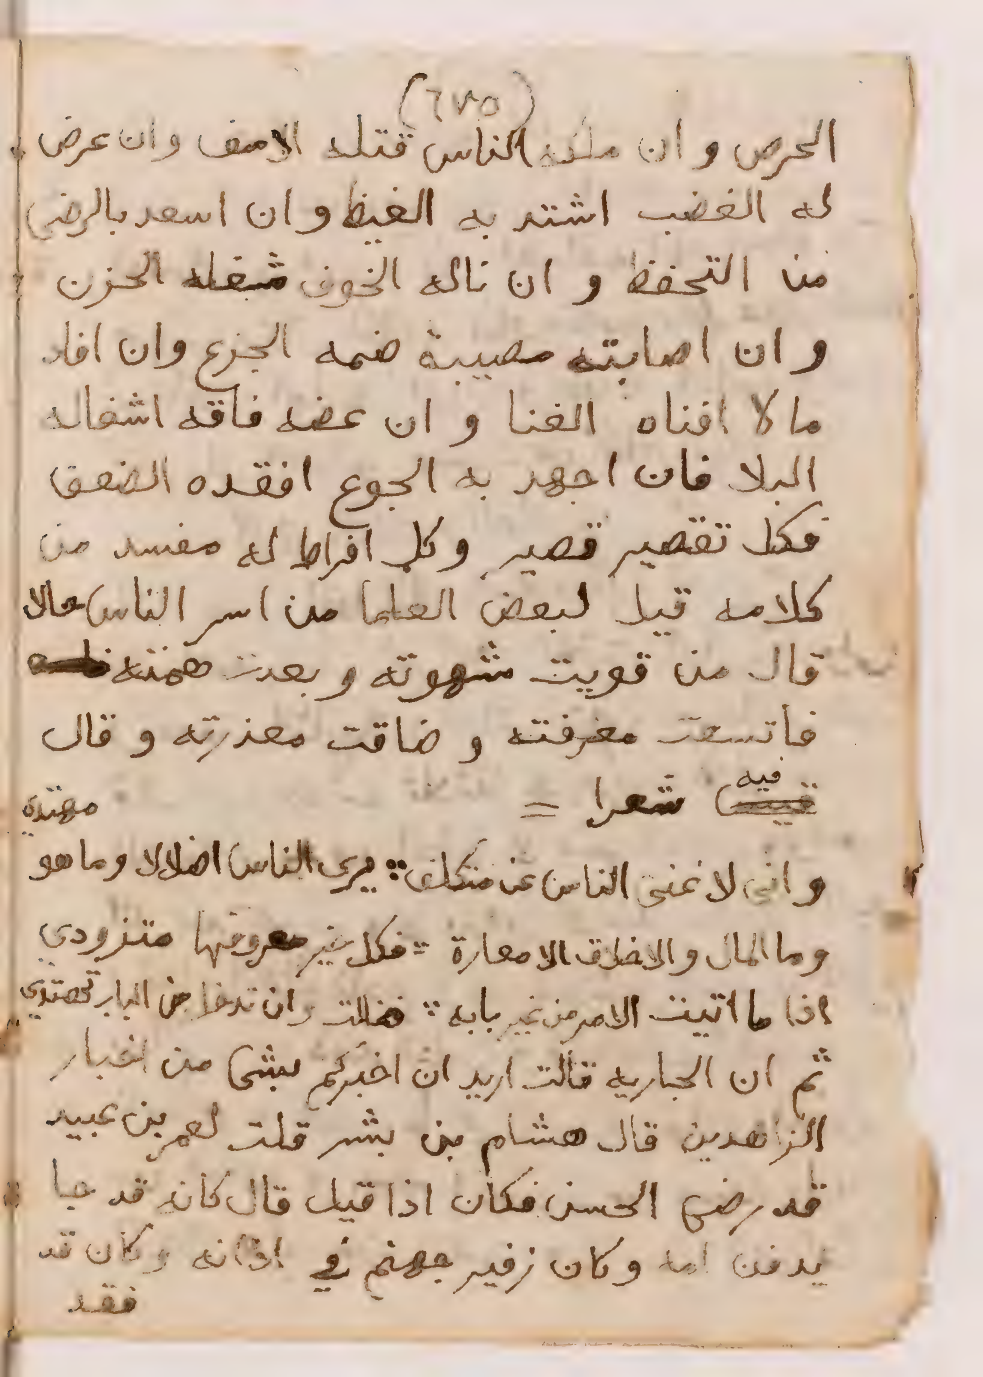 (٦٧٥)
الحرص وان ملكه الناس قتله الاسف وان عرض
له الغضب اشتد به الغيظ وان اسعد بالرضى
من التحفظ وان ناله الخوف شغله الحزن
وان اصابته مصيبة ضمه الجزع وان افاد
مالا افناه الغنا وان عضه فاقه اشغاله
البلا فان اجهد به الجوع افقده الضعف
فكل تقصير قصير وكل افراط له مفسد من
كلامه قيل لبعض العلما من اسر الناس حالا
قال من قويت شهوته وبعدت همته
فاتسعت معرفته وضاقت معذرته وقال
فيه شعرا =
مهتدي
واني لا غنى الناس عن متكلف ∴ يرى الناس اضلالا وما هو
وما المال والاخلاق الا معارة ∴ فكل غير معروفها متزودي
اذا ما اتيت الامر من غير بابه ∴ ضللت وان تدخل من الباب تهتدي
ثم ان الجاريه قالت اريد ان اخبركم بشئ من اخبار
الزاهدين قال هشام بن بشر قلت لعمر بن عبيد
قد رضى الحسن فكان اذا قيل قال كانه قد جا
يدفن امه وكان زفير جهنم في اذانه وكان قد
فقد